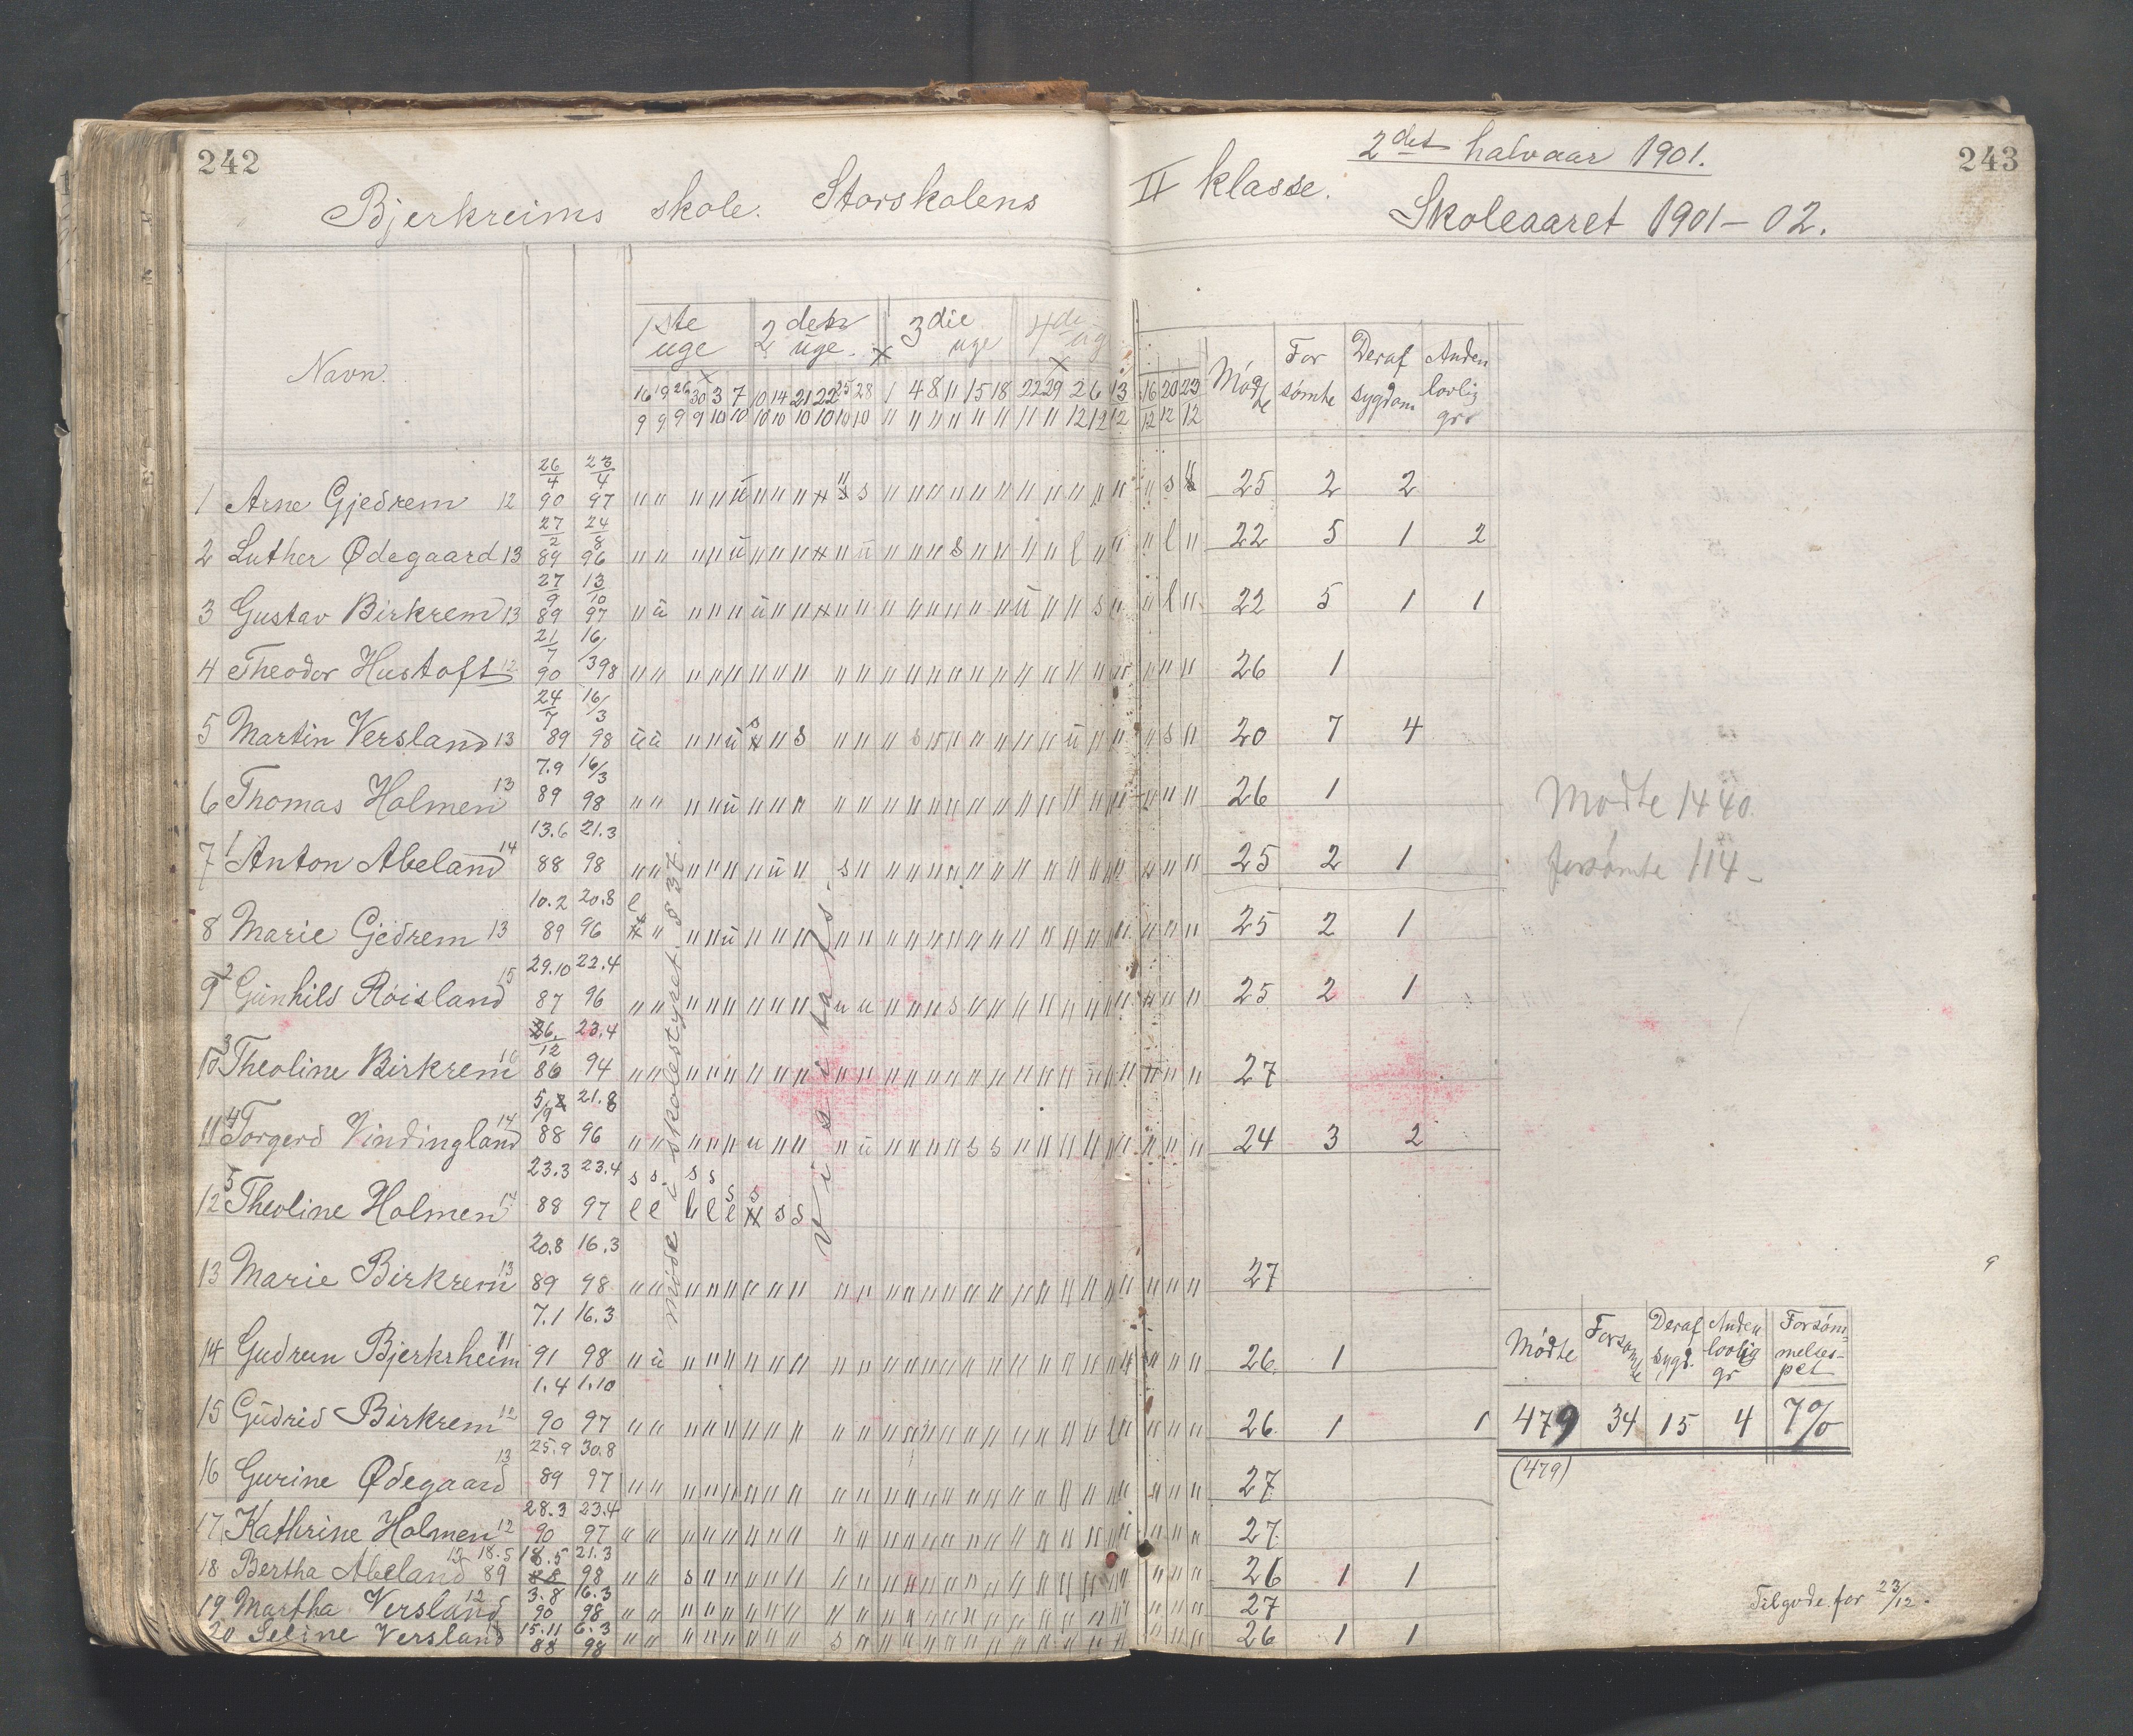 242
243
2det halvaar 1901.
Bjerkreims skole. Storskolens II klasse.
Skoleaaret 1901–02.
Navn.
1ste uge
2den uge.
3die uge
4de ug
Mødte
Forsømte
Deraf sygdom
Anden lovlig gr.
16 19 26 30 3 7 10 14 21 22 25 28 1 4 8 11 15 18 22 29 2 6 13 16 20 23
9 9 9 9 10 10 10 10 10 10 10 10 11 11 11 11 11 11 11 11 12 12 12 12 12 12
1 Arne Gjedrem 12 26/4 90 23/4 97 25 2 2
2 Luther Ødegaard 13 27/2 89 24/8 96 22 5 1 2
3 Gustav Birkrem 13 27/9 89 13/10 97 22 5 1 1
4 Theodor Hustoft 12 21/7 90 16/3 98 26 1
5 Martin Versland 13 24/7 89 16/3 98 20 7 4
6 Thomas Holmen 13 7.9 89 16/3 98 26 1
7 1 Anton Abeland 14 13.6 88 21.3 98 25 2 1
8 Marie Gjedrem 13 10.2 89 20.8 96 25 2 1
9 2 Gunhild Røisland 15 29.10 87 22.4 96 25 2 1
10 3 Theoline Birkrem 16 26/12 86 23.4 94 27
11 4 Torgerd Vindingland 14 5/9 88 21.8 96 24 3 2
12 5 Theoline Holmen 14 23.3 88 23.4 97
13 Marie Birkrem 13 20.8 89 16.3 98 27
14 Gudrun Bjerkrheim 11 7.1 91 16.3 98 26 1
15 Gudrid Birkrem 12 1.4 90 1.10 97 26 1 1
16 Gurine Ødegaard 13 25.9 89 30.8 97 27
17 Kathrine Holmen 12 28.3 90 23.4 97 27
18 Bertha Abeland 12 18.5 89 18.5 21.3 98 26 1 1
19 Martha Versland 12 3.8 90 16.3 98 27
20 Seline Versland 15.11 88 6.3 98 26 1 1
møde i skolestyret. § 37.
Visitats.
Mødte 1440.
forsømte 114–
Mødte Forsømte Deraf sygd. Anden lovlig gr Forsømmelses-pct
479 34 15 4 7%
(479)
Tilgode for 23/12.